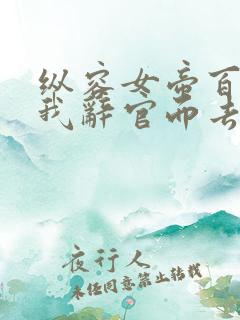 纵容女帝百
我辞官而去
夜行人
未经同意禁止转载